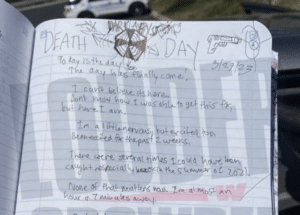 DARK ABYSS
DEATH DAY
3/27/23
Today is the day
The day has finally come.
I can't believe its here.
Dont know how I was able to get this far,
but here I am.
Im a little nervous, but excited too.
Been excited for the past 2 weeks.
There were several times I could have been
caught, especially back in the summer of 2021.
None of that matters now. I'm almost an
hour & 7 minutes away.